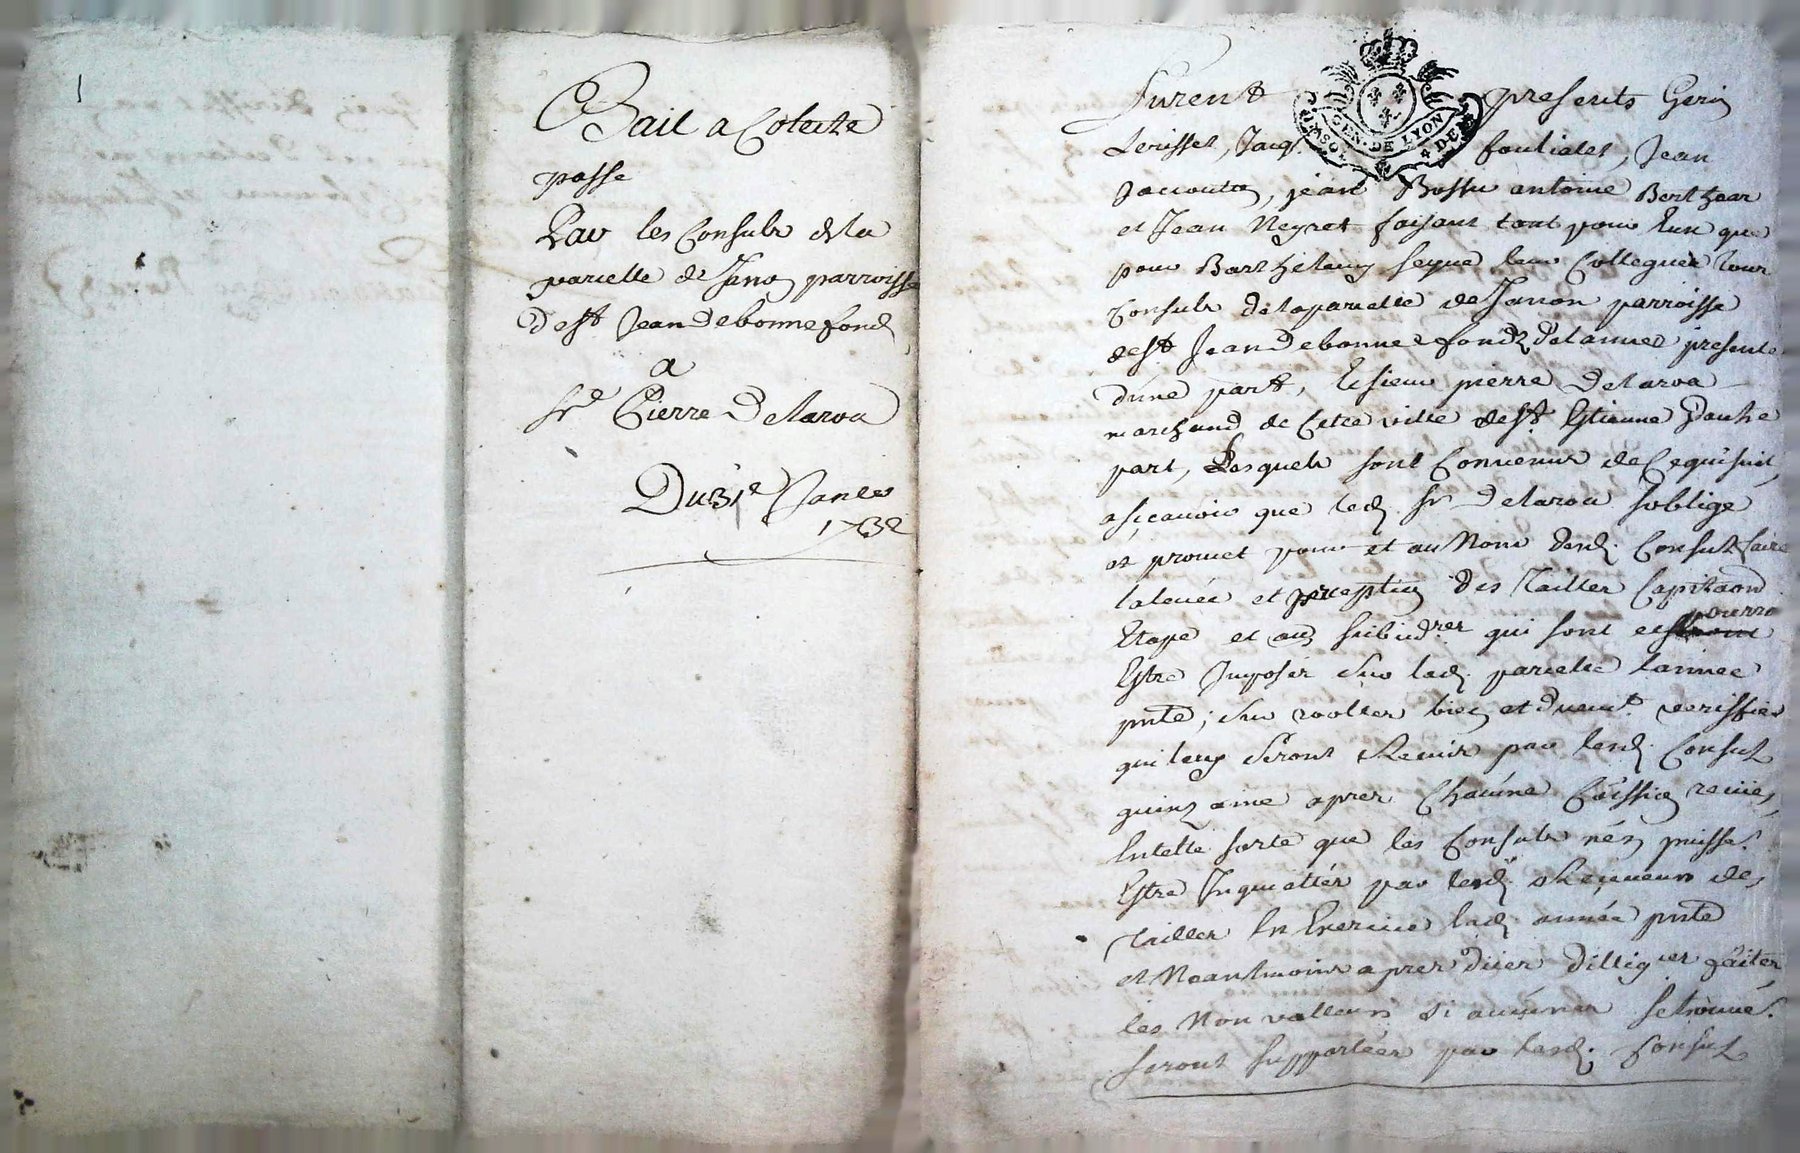 1
Bail a Colecte
passe
Par les Consuls de la
parcelle de Janon parroisse
de st Jean de bonnefond
a
Sr Pierre Delaroa
Du 31e Janer
1732
Furent presents
GEN. DE LYON
foulialet, Jean
jean Bossu antoine Berthear
et Jean Neyret faisant tant pour Eux que
pour Barthelemy seyue leur Collegue tous
Consuls de la parcelle de Janon parroisse
de st Jean De bonnefond De lannee presente
dune part, Le sieur pierre Delaroa
marchand de Cette ville de st Estienne Dautre
part, Lesquels sont Convenus de Cequisuit,
asçavoir que led. sr Delaroa soblige
et promet pour et au Nom desd. Consuls faire
la levée et perception Des Tailles Capitaon
pourra
Etape et au subsidres qui sont et
Estre Imposés Sur lad. parcelle lannee
pnte, sur roolles bien et duemt. veriffiés
qui luy seront Remis par lesd. Consuls
quinzaine apres Chacune
Entelle sorte que les Consuls nén puisse.
Estre Inquiettés par lesd. Receveurs des
Tailles En Exercice lad. année pnte
et Neantmoins apres Dilligces faites
les Non valleurs Si aucunes se trouve.
seront supportées par lesd. Consuls